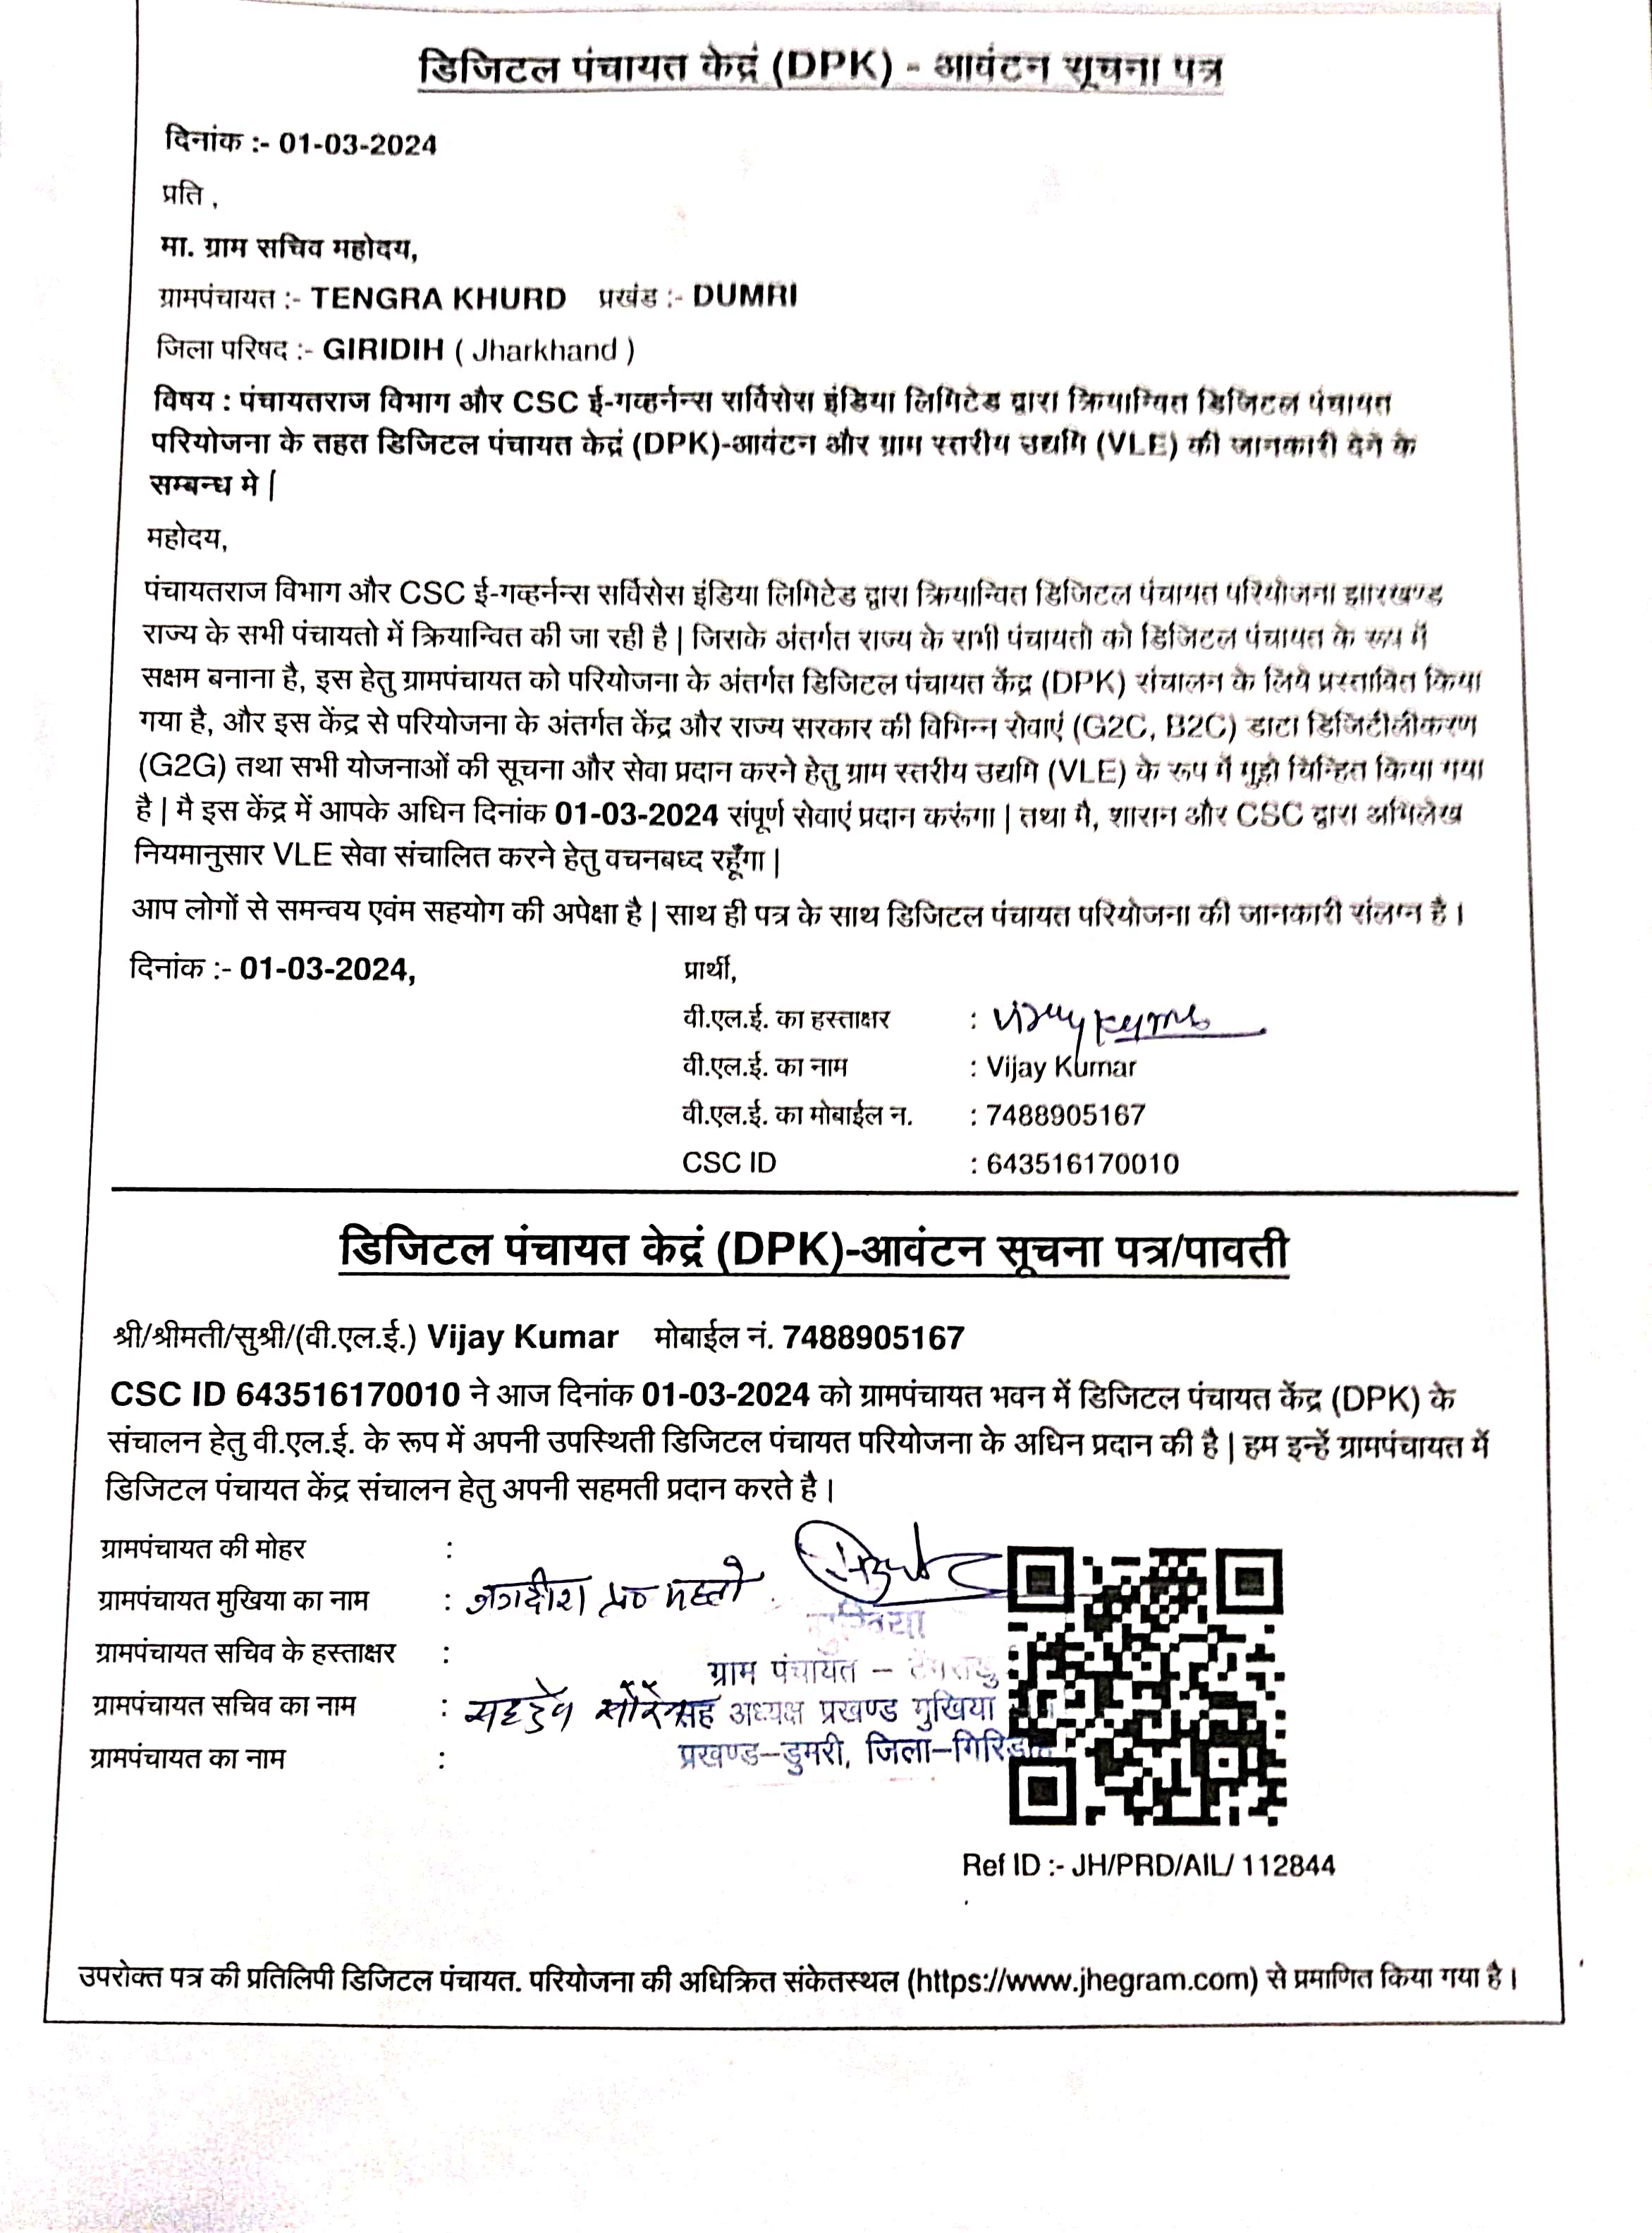 डिजिटल पंचायत केद्रं (DPK) - आवंटन सूचना पत्र
दिनांक :- 01-03-2024
प्रति ,
मा. ग्राम सचिव महोदय,
ग्रामपंचायत :- TENGRA KHURD प्रखंड :- DUMRI
जिला परिषद :- GIRIDIH ( Jharkhand )
विषय : पंचायतराज विभाग और CSC ई-गव्हर्नन्स सर्विसेस इंडिया लिमिटेड द्वारा क्रियान्वित डिजिटल पंचायत
परियोजना के तहत डिजिटल पंचायत केद्रं (DPK)-आवंटन और ग्राम स्तरीय उद्यमि (VLE) की जानकारी देने के
सम्बन्ध मे |
महोदय,
पंचायतराज विभाग और CSC ई-गव्हर्नन्स सर्विसेस इंडिया लिमिटेड द्वारा क्रियान्वित डिजिटल पंचायत परियोजना झारखण्ड
राज्य के सभी पंचायतो में क्रियान्वित की जा रही है | जिसके अंतर्गत राज्य के सभी पंचायतो को डिजिटल पंचायत के रूप में
सक्षम बनाना है, इस हेतु ग्रामपंचायत को परियोजना के अंतर्गत डिजिटल पंचायत केंद्र (DPK) संचालन के लिये प्रस्तावित किया
गया है, और इस केंद्र से परियोजना के अंतर्गत केंद्र और राज्य सरकार की विभिन्न सेवाएं (G2C, B2C) डाटा डिजिटीलीकरण
(G2G) तथा सभी योजनाओं की सूचना और सेवा प्रदान करने हेतु ग्राम स्तरीय उद्यमि (VLE) के रूप में मुझे चिन्हित किया गया
है | मै इस केंद्र में आपके अधिन दिनांक 01-03-2024 संपूर्ण सेवाएं प्रदान करूंगा | तथा मै, शासन और CSC द्वारा अभिलेख
नियमानुसार VLE सेवा संचालित करने हेतु वचनबध्द रहूँगा |
आप लोगों से समन्वय एवंम सहयोग की अपेक्षा है | साथ ही पत्र के साथ डिजिटल पंचायत परियोजना की जानकारी संलग्न है ।
दिनांक :- 01-03-2024, प्रार्थी,
वी.एल.ई. का हस्ताक्षर : Vijay Kumar
वी.एल.ई. का नाम : Vijay Kumar
वी.एल.ई. का मोबाईल न. : 7488905167
CSC ID : 643516170010
डिजिटल पंचायत केद्रं (DPK)-आवंटन सूचना पत्र/पावती
श्री/श्रीमती/सुश्री/(वी.एल.ई.) Vijay Kumar मोबाईल नं. 7488905167
CSC ID 643516170010 ने आज दिनांक 01-03-2024 को ग्रामपंचायत भवन में डिजिटल पंचायत केंद्र (DPK) के
संचालन हेतु वी.एल.ई. के रूप में अपनी उपस्थिती डिजिटल पंचायत परियोजना के अधिन प्रदान की है | हम इन्हें ग्रामपंचायत में
डिजिटल पंचायत केंद्र संचालन हेतु अपनी सहमती प्रदान करते है ।
ग्रामपंचायत की मोहर :
ग्रामपंचायत मुखिया का नाम : जगदीश प्र० महतो
मुखिया
ग्रामपंचायत सचिव के हस्ताक्षर :
ग्राम पंचायत –
ग्रामपंचायत सचिव का नाम : सहदेव सोरेन
सह अध्यक्ष प्रखण्ड मुखिया
ग्रामपंचायत का नाम :
प्रखण्ड–डुमरी, जिला–गिरिडीह
Ref ID :- JH/PRD/AIL/ 112844
उपरोक्त पत्र की प्रतिलिपी डिजिटल पंचायत. परियोजना की अधिक्रित संकेतस्थल (https://www.jhegram.com) से प्रमाणित किया गया है ।